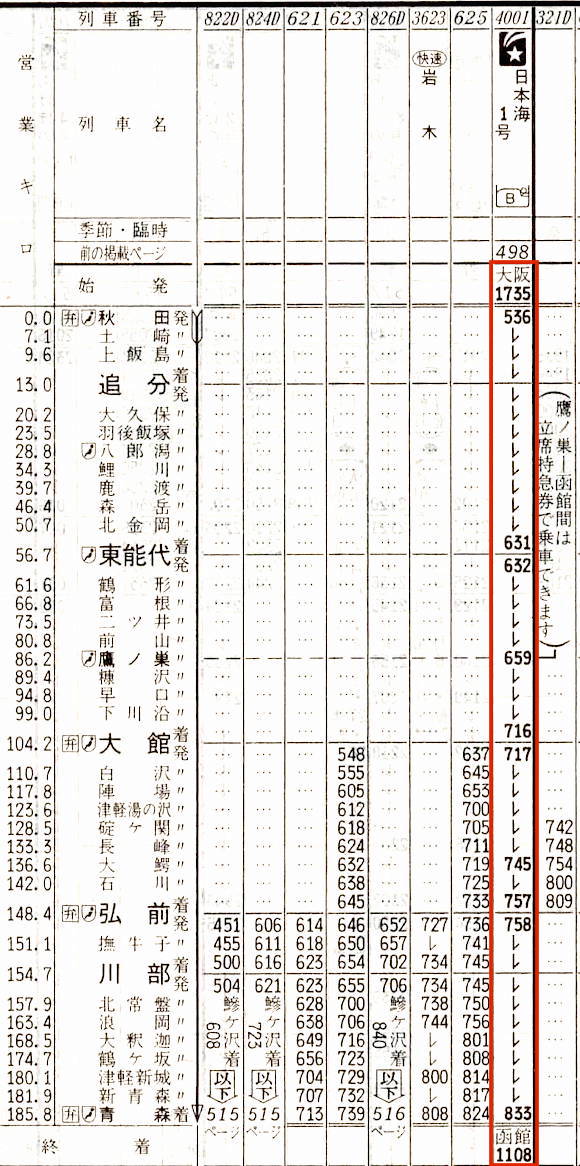 列車番号 822D 824D 621 623 826D 3623 625 4001 321D
営業キロ 列車名 快速 岩木 日本海1号 B
季節・臨時
前の掲載ページ 498
始発 大阪 1735
0.0 弁 秋田発 … … … … … … … 536 …
7.1 土崎〃 … … … … … … … レ
9.6 上飯島〃 … … … … … … … レ
13.0 追分着発 … … … … … … … レ
20.2 大久保〃 … … … … … … … レ
23.5 羽後飯塚〃 … … … … … … … レ
28.8 八郎潟〃 … … … … … … … レ
34.3 鯉川〃 … … … … … … … レ
39.7 鹿渡〃 … … … … … … … レ
46.4 森岳〃 … … … … … … … レ
50.7 北金岡〃 … … … … … … … レ
56.7 東能代着 … … … … … … … 631
発 … … … … … … … 632
61.6 鶴形〃 … … … … … … … レ
66.8 富根〃 … … … … … … … レ
73.5 二ツ井〃 … … … … … … … レ
80.8 前山〃 … … … … … … … レ
86.2 鷹ノ巣〃 … … … … … … … 659
89.4 糠沢〃 … … … … … … … レ …
94.8 早口〃 … … … … … … … レ …
99.0 下川沿〃 … … … … … … … レ …
104.2 弁 大館着 … … … … … … … 716 …
発 … … … 548 … … 637 717 …
110.7 白沢〃 … … … 555 … … 645 レ …
117.8 陣場〃 … … … 605 … … 653 レ …
123.6 津軽湯の沢〃 … … … 612 … … 700 レ …
128.5 碇ケ関〃 … … … 618 … … 705 レ 742
133.3 長峰〃 … … … 624 … … 711 レ 748
136.6 大鰐〃 … … … 632 … … 719 745 754
142.0 石川〃 … … … 638 … … 725 レ 800
148.4 弁 弘前着 … … … 645 … … 733 757 809
発 451 606 614 646 652 727 736 758 …
151.1 撫牛子〃 455 611 618 650 657 レ 741 レ …
154.7 川部着 500 616 623 654 702 734 745 レ …
発 504 621 623 655 706 734 745 レ …
157.9 北常盤〃 628 700 738 750 レ …
163.4 浪岡〃 638 706 744 756 レ …
168.5 大釈迦〃 649 716 レ 801 レ …
174.7 鶴ケ坂〃 656 723 レ 808 レ …
180.1 津軽新城〃 704 729 800 814 レ …
181.9 新青森〃 707 732 レ 817 レ …
185.8 弁 青森着 515 515 713 739 516 808 824 833 …
鰺ケ沢着 608 以下 515ページ
鰺ケ沢着 723 以下 515ページ
鰺ケ沢着 840 以下 516ページ
(鷹ノ巣—函館間は
立席特急券で乗車できます)
終着 函館 1108